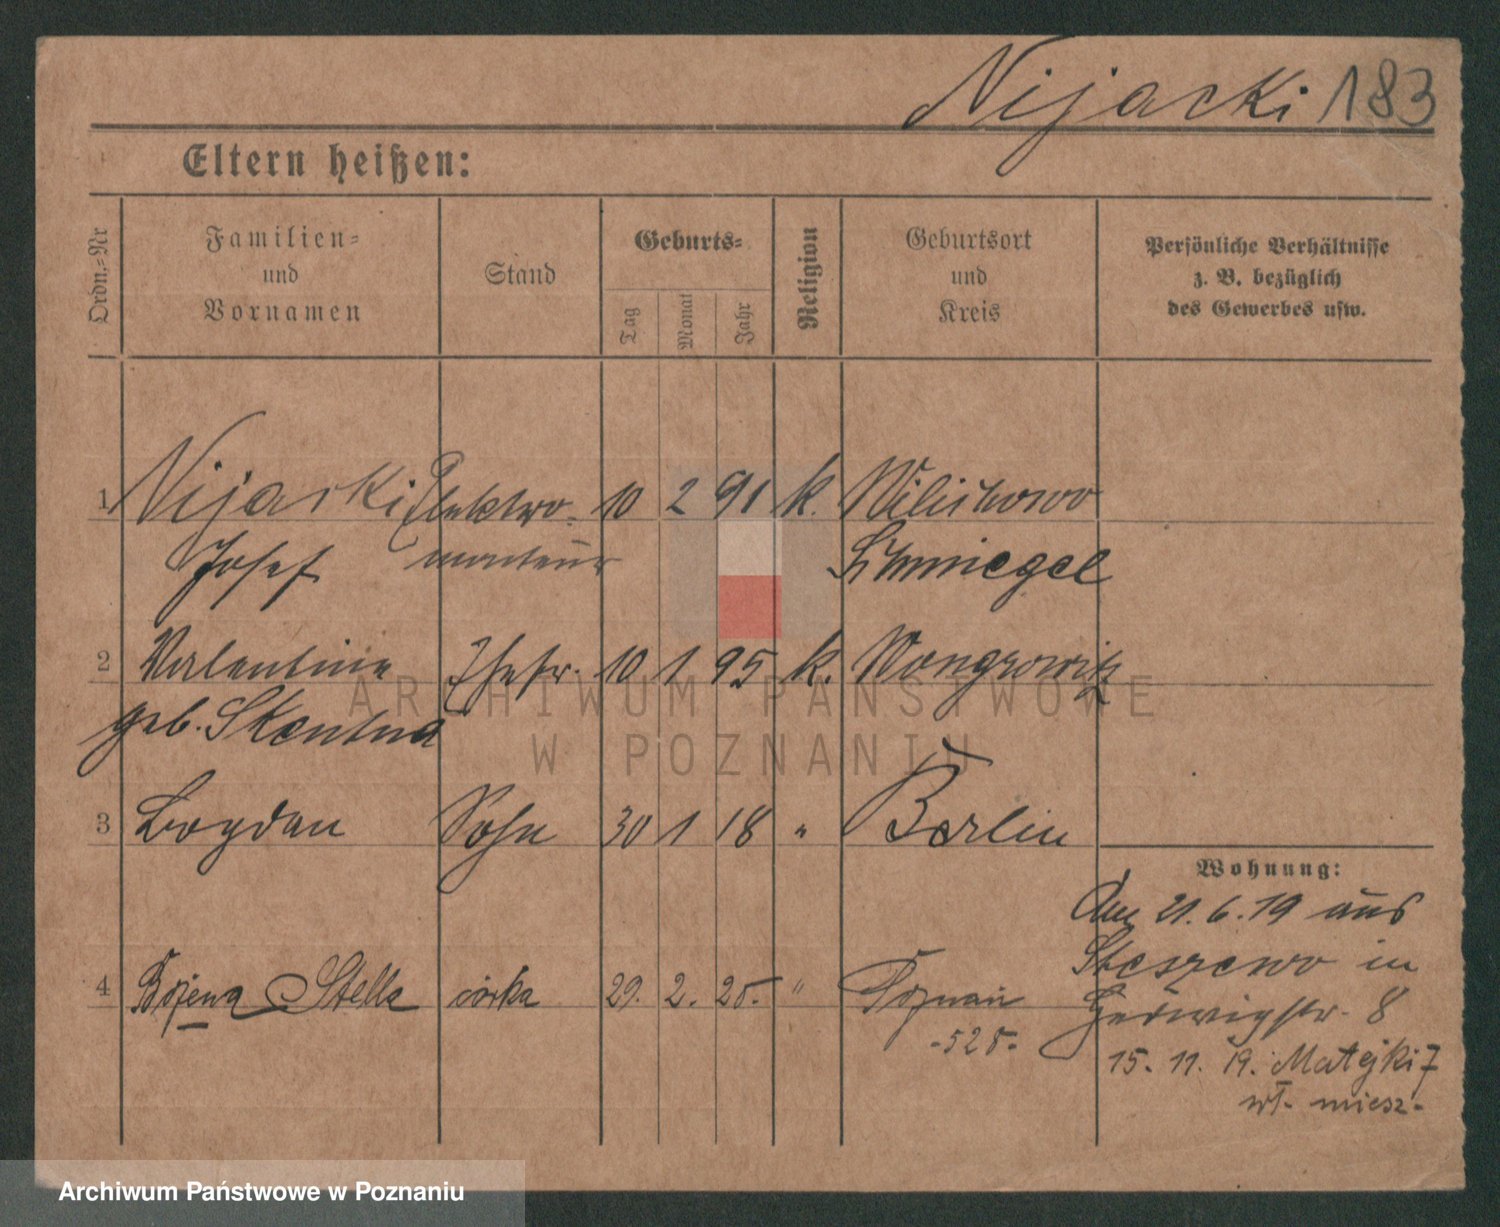 Nijacki 183
Eltern heißen:
Ordn.-Nr
Familien-
und
Vornamen
Stand
Geburts-
Tag
Monat
Jahr
Religion
Geburtsort
und
Kreis
Persönliche Verhältnisse
z. B. bezüglich
des Gewerbes usw.
1 Nijacki Elektro- 10 2 91 k.
Josef monteur Schmiegel
2 Valentine Ehefr. 10 1 95 k. Wongrowitz
geb.
3 Bogdan Sohn 30 1 18 " Berlin
Wohnung:
Am 21.6.19 aus
Steszewo in
Hedwigstr. 8
4 Bożena Stella córka 29. 2. 25. " Poznań
-525-
15. 11. 19. Matejki 7
wł. miesz.
ARCHIWUM PAŃSTWOWE
W POZNANIU
Archiwum Państwowe w Poznaniu